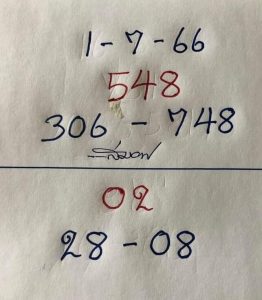 1-7-66
548
306 - 748
02
28-08